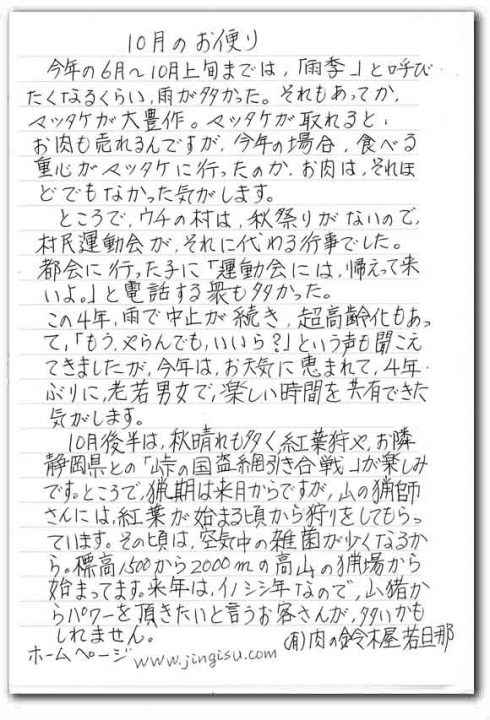 10月のお便り
今年の6月～10月上旬までは、「雨季」と呼び
たくなるくらい、雨が多かった。それもあってか、
マツタケが大豊作。マツタケが取れると、
お肉も売れるんですが、今年の場合、食べる
重心がマツタケに行ったのか、お肉は、それほ
どでもなかった気がします。
ところで、ウチの村は、秋祭りがないので、
村民運動会が、それに代わる行事でした。
都会に行った子に「運動会には、帰えって来
いよ。」と電話する衆も多かった。
この4年、雨で中止が続き、超高齢化もあっ
て、「もう、やらんでも、いいら？」という声も聞こえ
てきましたが、今年は、お天気に恵まれて、4年
ぶりに、老若男女で、楽しい時間を共有できた
気がします。
10月後半は、秋晴れも多く、紅葉狩や、お隣
静岡県との「峠の国盗綱引き合戦」が楽しみ
です。ところで、猟期は来月からですが、山の猟師
さんには、紅葉が始まる頃から狩りをしてもらっ
ています。その頃は、空気中の雑菌が少くなるか
ら。標高1500から2000mの高山の猟場から
始まってます。来年は、イノシシ年なので、山猪か
らパワーを頂きたいと言うお客さんが、多いかも
しれません。
(有)肉の鈴木屋 若旦那
ホームページ www.jingisu.com